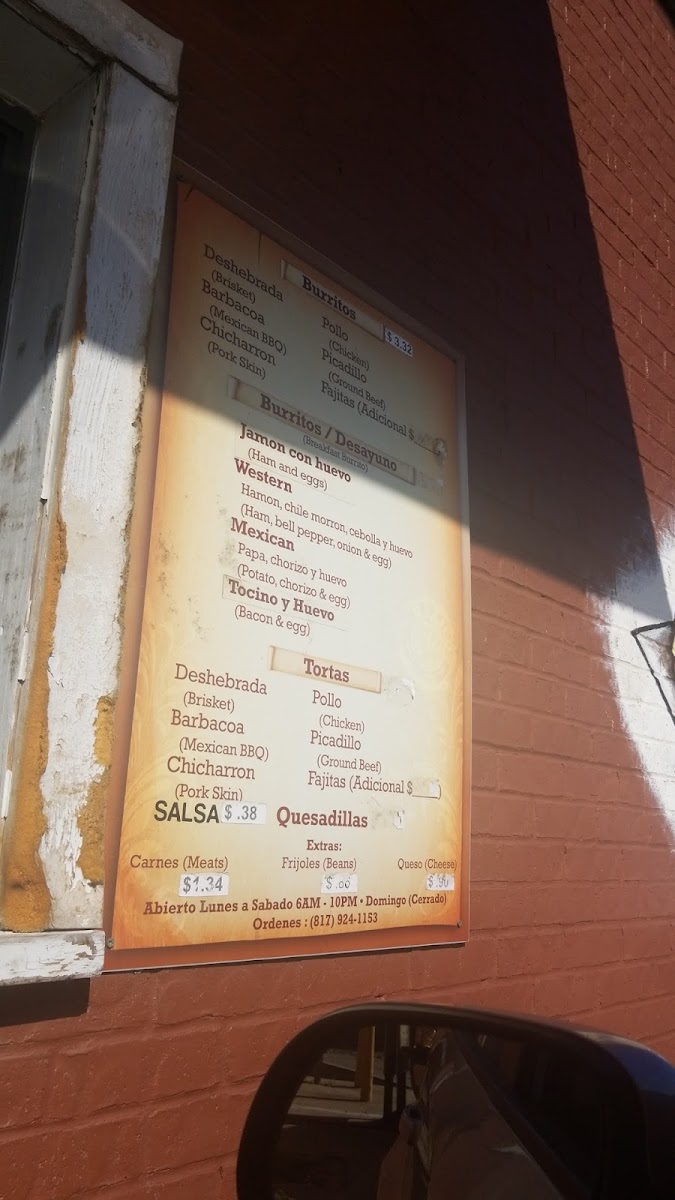 Burritos $3.32
Deshebrada
(Brisket)
Barbacoa
(Mexican BBQ)
Chicharron
(Pork Skin)
Pollo
(Chicken)
Picadillo
(Ground Beef)
Fajitas (Adicional $
Burritos / Desayuno
(Breakfast Burrito)
Jamon con huevo
(Ham and eggs)
Western
Hamon, chile morron, cebolla y huevo
(Ham, bell pepper, onion & egg)
Mexican
Papa, chorizo y huevo
(Potato, chorizo & egg)
Tocino y Huevo
(Bacon & egg)
Tortas
Deshebrada
(Brisket)
Barbacoa
(Mexican BBQ)
Chicharron
(Pork Skin)
Pollo
(Chicken)
Picadillo
(Ground Beef)
Fajitas (Adicional $
SALSA $.38
Quesadillas
Extras:
Carnes (Meats) Frijoles (Beans) Queso (Cheese)
$1.34
Abierto Lunes a Sabado 6AM - 10PM • Domingo (Cerrado)
Ordenes : (817) 924-1153